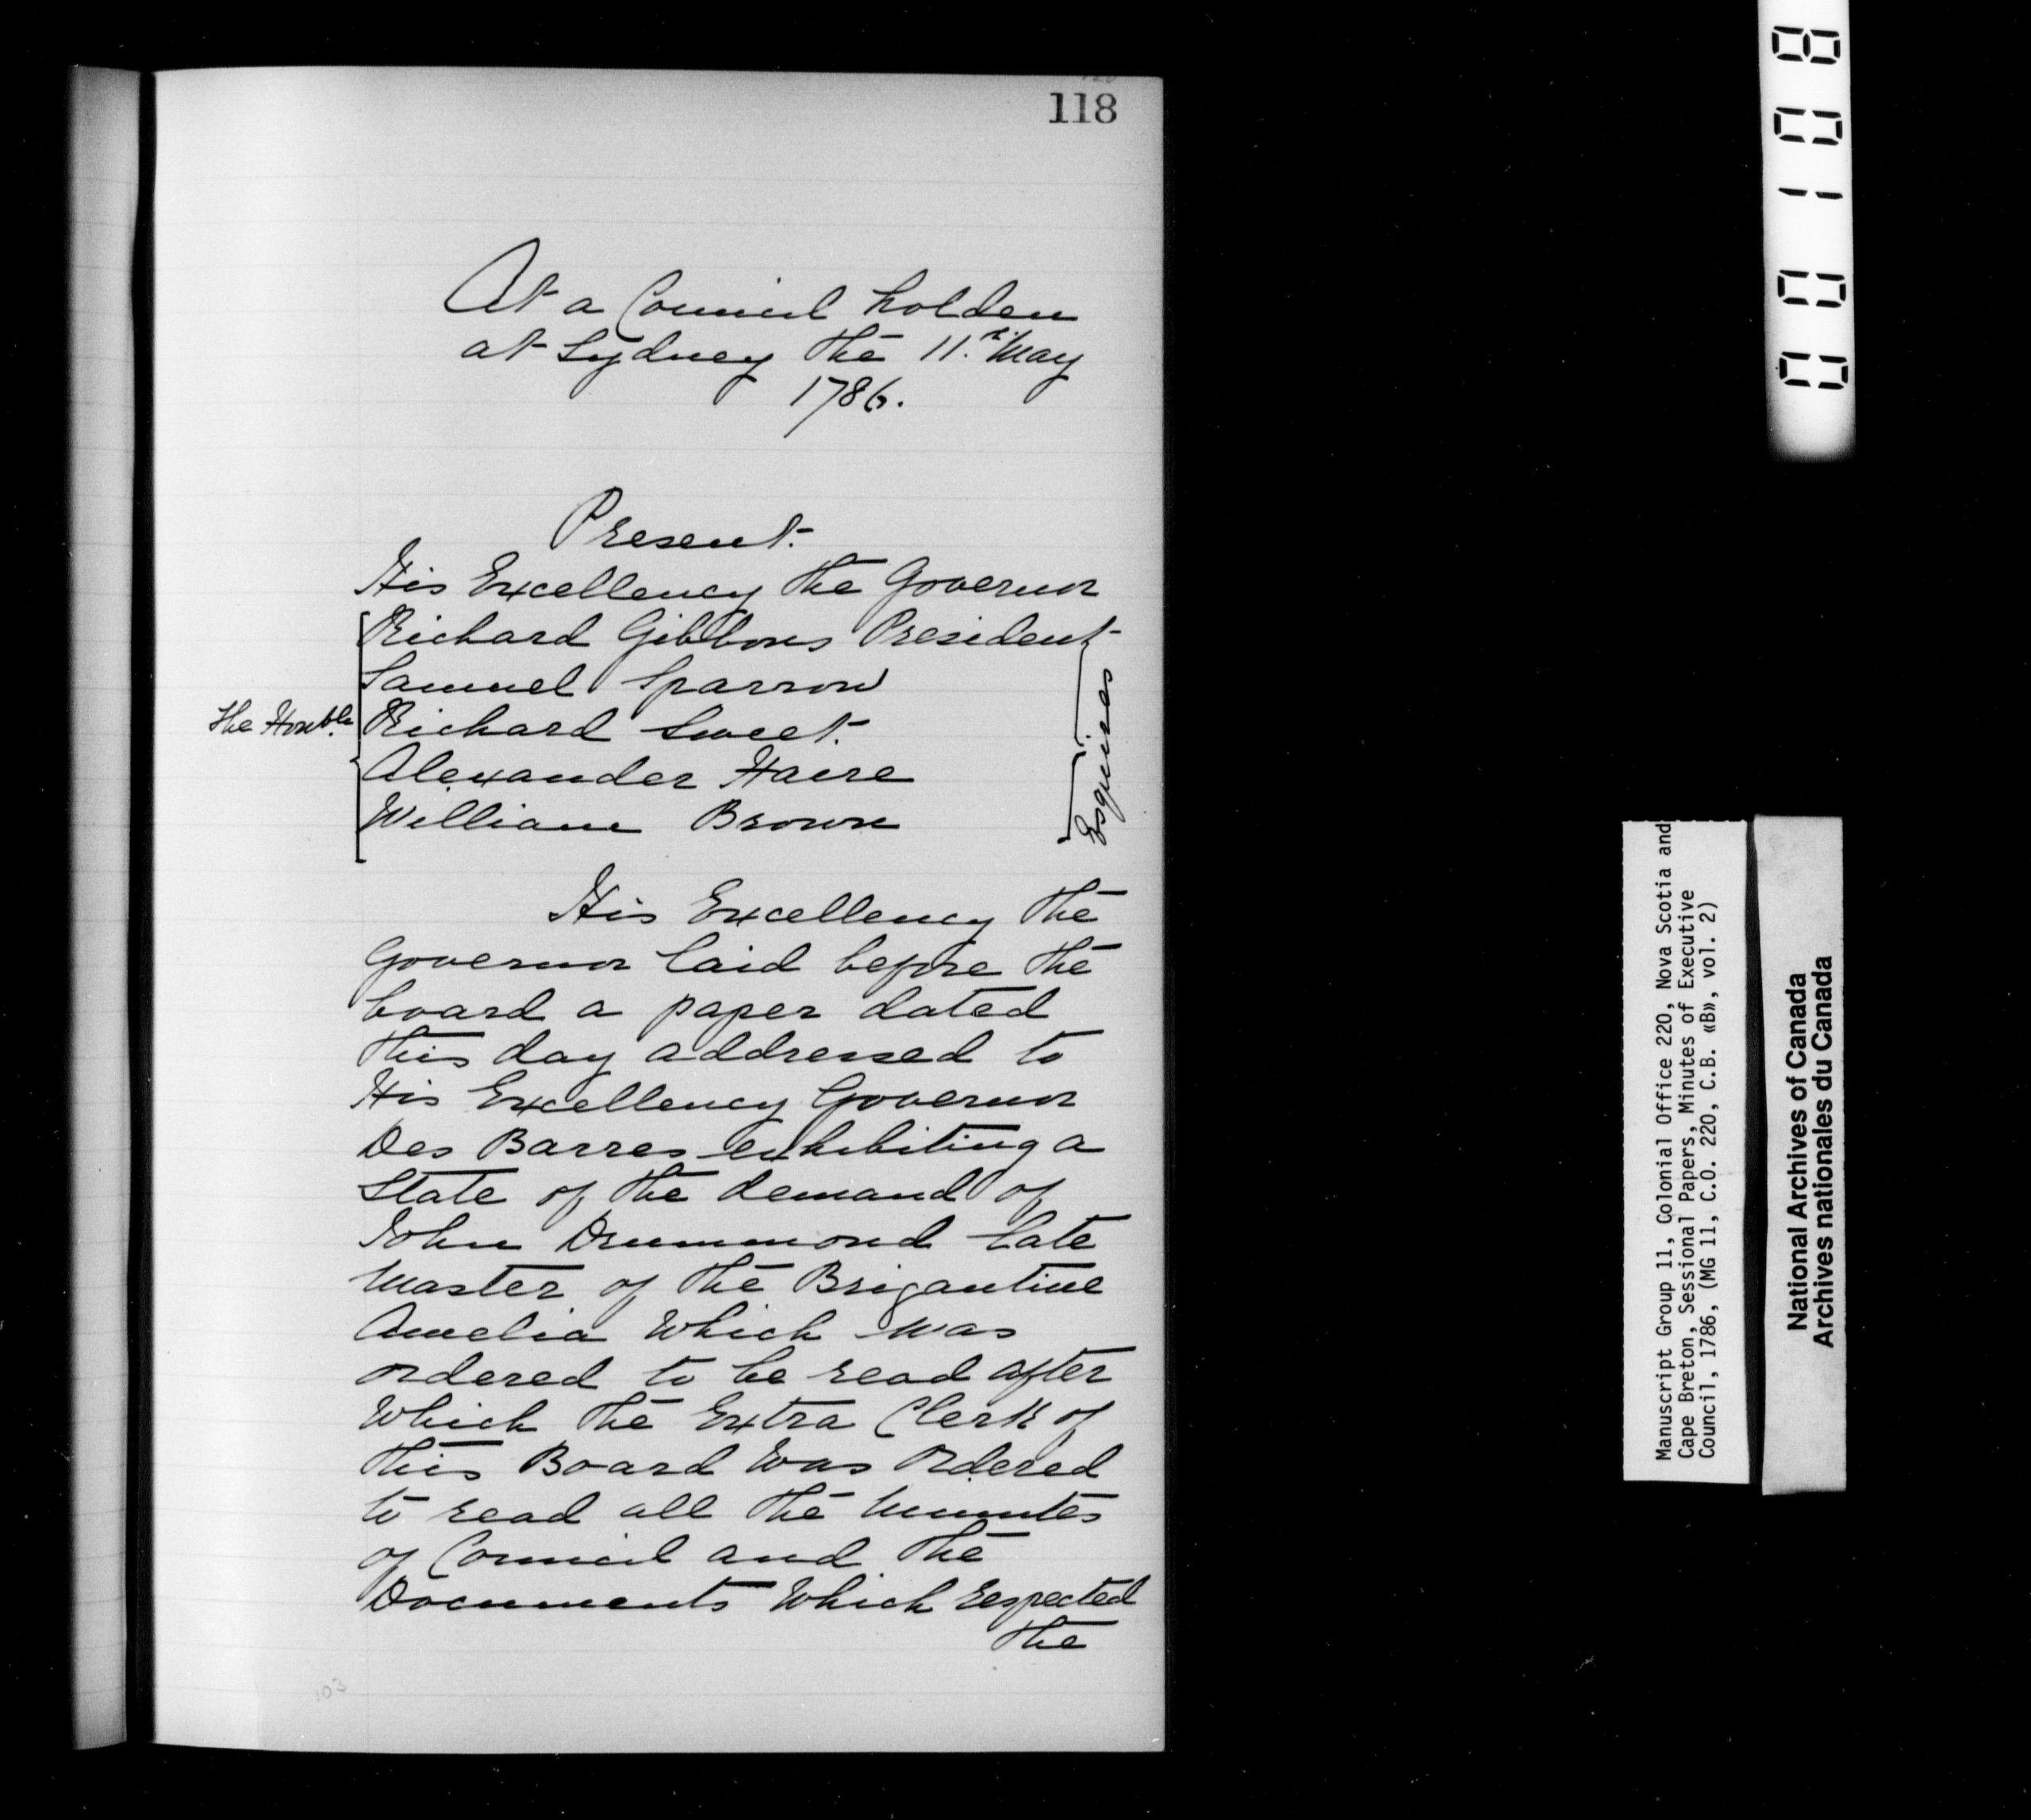 118
At a Council holden
at Sydney the 11.th May
1786.
Present.
His Excellency the Governor
The Honble.
Richard Gibbons President
Samuel Sparrow
Richard Sweet.
Alexander Haire
William Brown
Esquires
His Excellency the
Governor laid before the
board a paper dated
this day addressed to
His Excellency Governor
Des Barres exhibiting a
State of the demand of
John Drummond late
Master of the Brigantine
Amelia Which was
ordered to be read after
Which the Extra Clerk of
this Board was ordered
to read all the Minutes
of Council and the
Documents Which respected
the
103
00108
Manuscript Group 11, Colonial Office 220, Nova Scotia and
Cape Breton, Sessional Papers, Minutes of Executive
Council, 1786, (MG 11, C.O. 220, C.B. «B», vol. 2)
National Archives of Canada
Archives nationales du Canada